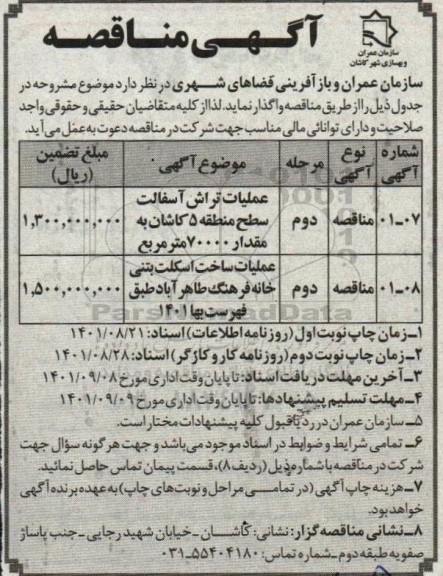 آگهی مناقصه
سازمان عمران
و بهسازی شهر کاشان
سازمان عمران و بازآفرینی فضاهای شهری در نظر دارد موضوع مشروحه در
جدول ذیل را از طریق مناقصه واگذار نماید. لذا از کلیه متقاضیان حقیقی و حقوقی واجد
صلاحیت و دارای توانائی مالی مناسب جهت شرکت در مناقصه دعوت به عمل می آید.
شماره آگهی نوع آگهی مرحله موضوع آگهی مبلغ تضمین (ریال)
۰۱-۰۷ مناقصه دوم عملیات تراش آسفالت سطح منطقه ۵ کاشان به مقدار ۷۰۰۰۰ مترمربع ۱,۳۰۰,۰۰۰,۰۰۰
۰۱-۰۸ مناقصه دوم عملیات ساخت اسکلت بتنی خانه فرهنگ طاهرآباد طبق فهرست بها ۱۴۰۱ ۱,۵۰۰,۰۰۰,۰۰۰
۱- زمان چاپ نوبت اول (روزنامه اطلاعات) اسناد: ۱۴۰۱/۰۸/۲۱
۲- زمان چاپ نوبت دوم (روزنامه کار و کارگر) اسناد: ۱۴۰۱/۰۸/۲۸
۳- آخرین مهلت دریافت اسناد: تا پایان وقت اداری مورخ ۱۴۰۱/۰۹/۰۸
۴- مهلت تسلیم پیشنهادها: تا پایان وقت اداری مورخ ۱۴۰۱/۰۹/۰۹
۵- سازمان عمران در رد یا قبول کلیه پیشنهادات مختار است.
۶- تمامی شرایط و ضوابط در اسناد موجود می باشد و جهت هرگونه سؤال جهت
شرکت در مناقصه با شماره ذیل (ردیف ۸)، قسمت پیمان تماس حاصل نمائید.
۷- هزینه چاپ آگهی (در تمامـی مراحل و نوبت های چاپ) به عهده برنده آگهی
خواهد بود.
۸- نشانی مناقصه گزار: نشانی: کاشان - خیابان شهید رجایی - جنب پاساژ
صفویه طبقه دوم - شماره تماس: ۵۵۴۰۴۱۸۰-۰۳۱